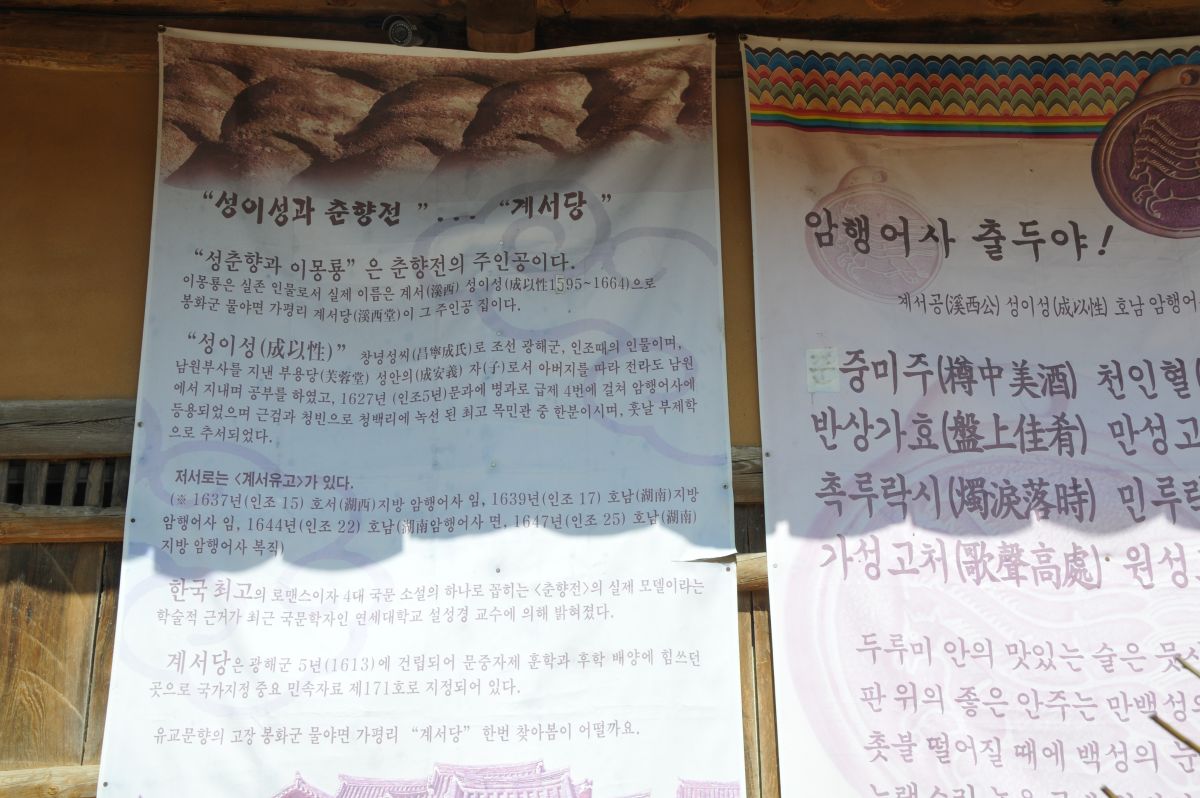 “성이성과 춘향전 ”... “계서당 ”
“성춘향과 이몽룡” 은 춘향전의 주인공이다.
이몽룡은 실존 인물로서 실제 이름은 계서(溪西) 성이성(成以性1595~1664)으로
봉화군 물야면 가평리 계서당(溪西堂)이 그 주인공 집이다.
“성이성(成以性)” 창녕성씨(昌寧成氏)로 조선 광해군, 인조때의 인물이며,
남원부사를 지낸 부용당(芙蓉堂) 성안의(成安義) 자(子)로서 아버지를 따라 전라도 남원
에서 지내며 공부를 하였고, 1627년 (인조5년)문과에 병과로 급제 4번에 걸쳐 암행어사에
등용되었으며 근검과 청빈으로 청백리에 녹선 된 최고 목민관 중 한분이시며, 훗날 부제학
으로 추서되었다.
저서로는 <계서유고>가 있다.
(※ 1637년(인조 15) 호서(湖西)지방 암행어사 임, 1639년(인조 17) 호남(湖南)지방
암행어사 임, 1644년(인조 22) 호남(湖南암행어사 면, 1647년(인조 25) 호남(湖南)
지방 암행어사 복직)
한국 최고의 로맨스이자 4대 국문 소설의 하나로 꼽히는 <춘향전>의 실제 모델이라는
학술적 근거가 최근 국문학자인 연세대학교 설성경 교수에 의해 밝혀졌다.
계서당은 광해군 5년(1613)에 건립되어 문중자제 훈학과 후학 배양에 힘쓰던
곳으로 국가지정 중요 민속자료 제171호로 지정되어 있다.
유교문향의 고장 봉화군 물야면 가평리 “계서당” 한번 찾아봄이 어떨까요.
암행어사 출두야!
계서공(溪西公) 성이성(成以性) 호남 암행어
준중미주(樽中美酒) 천인혈(
반상가효(盤上佳肴) 만성고
촉루락시(燭淚落時) 민루락
가성고처(歌聲高處) 원성
두루미 안의 맛있는 술은 뭇사
판 위의 좋은 안주는 만백성의
촛불 떨어질 때에 백성의 눈